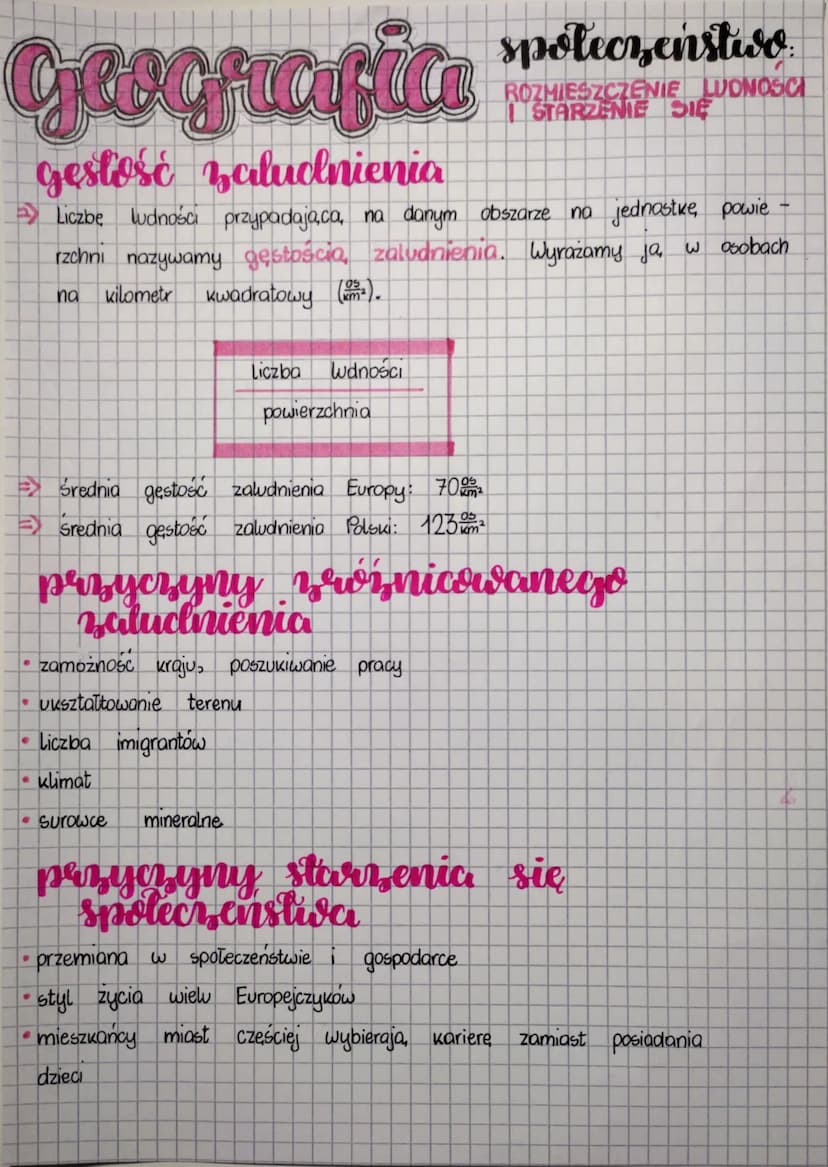 Geografia
społeczeństwo:
ROZMIESZCZENIE LUDNOŚCI
I STARZENIE SIĘ
gęstość zaludnienia
⇒ Liczbę ludności przypadającą na danym obszarze na jednostkę powie-
rzchni nazywamy gęstością zaludnienia. Wyrażamy ją w osobach
na kilometr kwadratowy (os/km²).
Liczba ludności
powierzchnia
⇒ średnia gęstość zaludnienia Europy: 70 os/km²
⇒ średnia gęstość zaludnienia Polski: 123 os/km²
przyczyny zróżnicowanego
zaludnienia
• zamożność kraju, poszukiwanie pracy
• ukształtowanie terenu
• liczba imigrantów
• klimat
• surowce mineralne
przyczyny starzenia się
społeczeństwa
• przemiana w społeczeństwie i gospodarce
• styl życia wielu Europejczyków
• mieszkańcy miast częściej wybierają karierę zamiast posiadania
dzieci